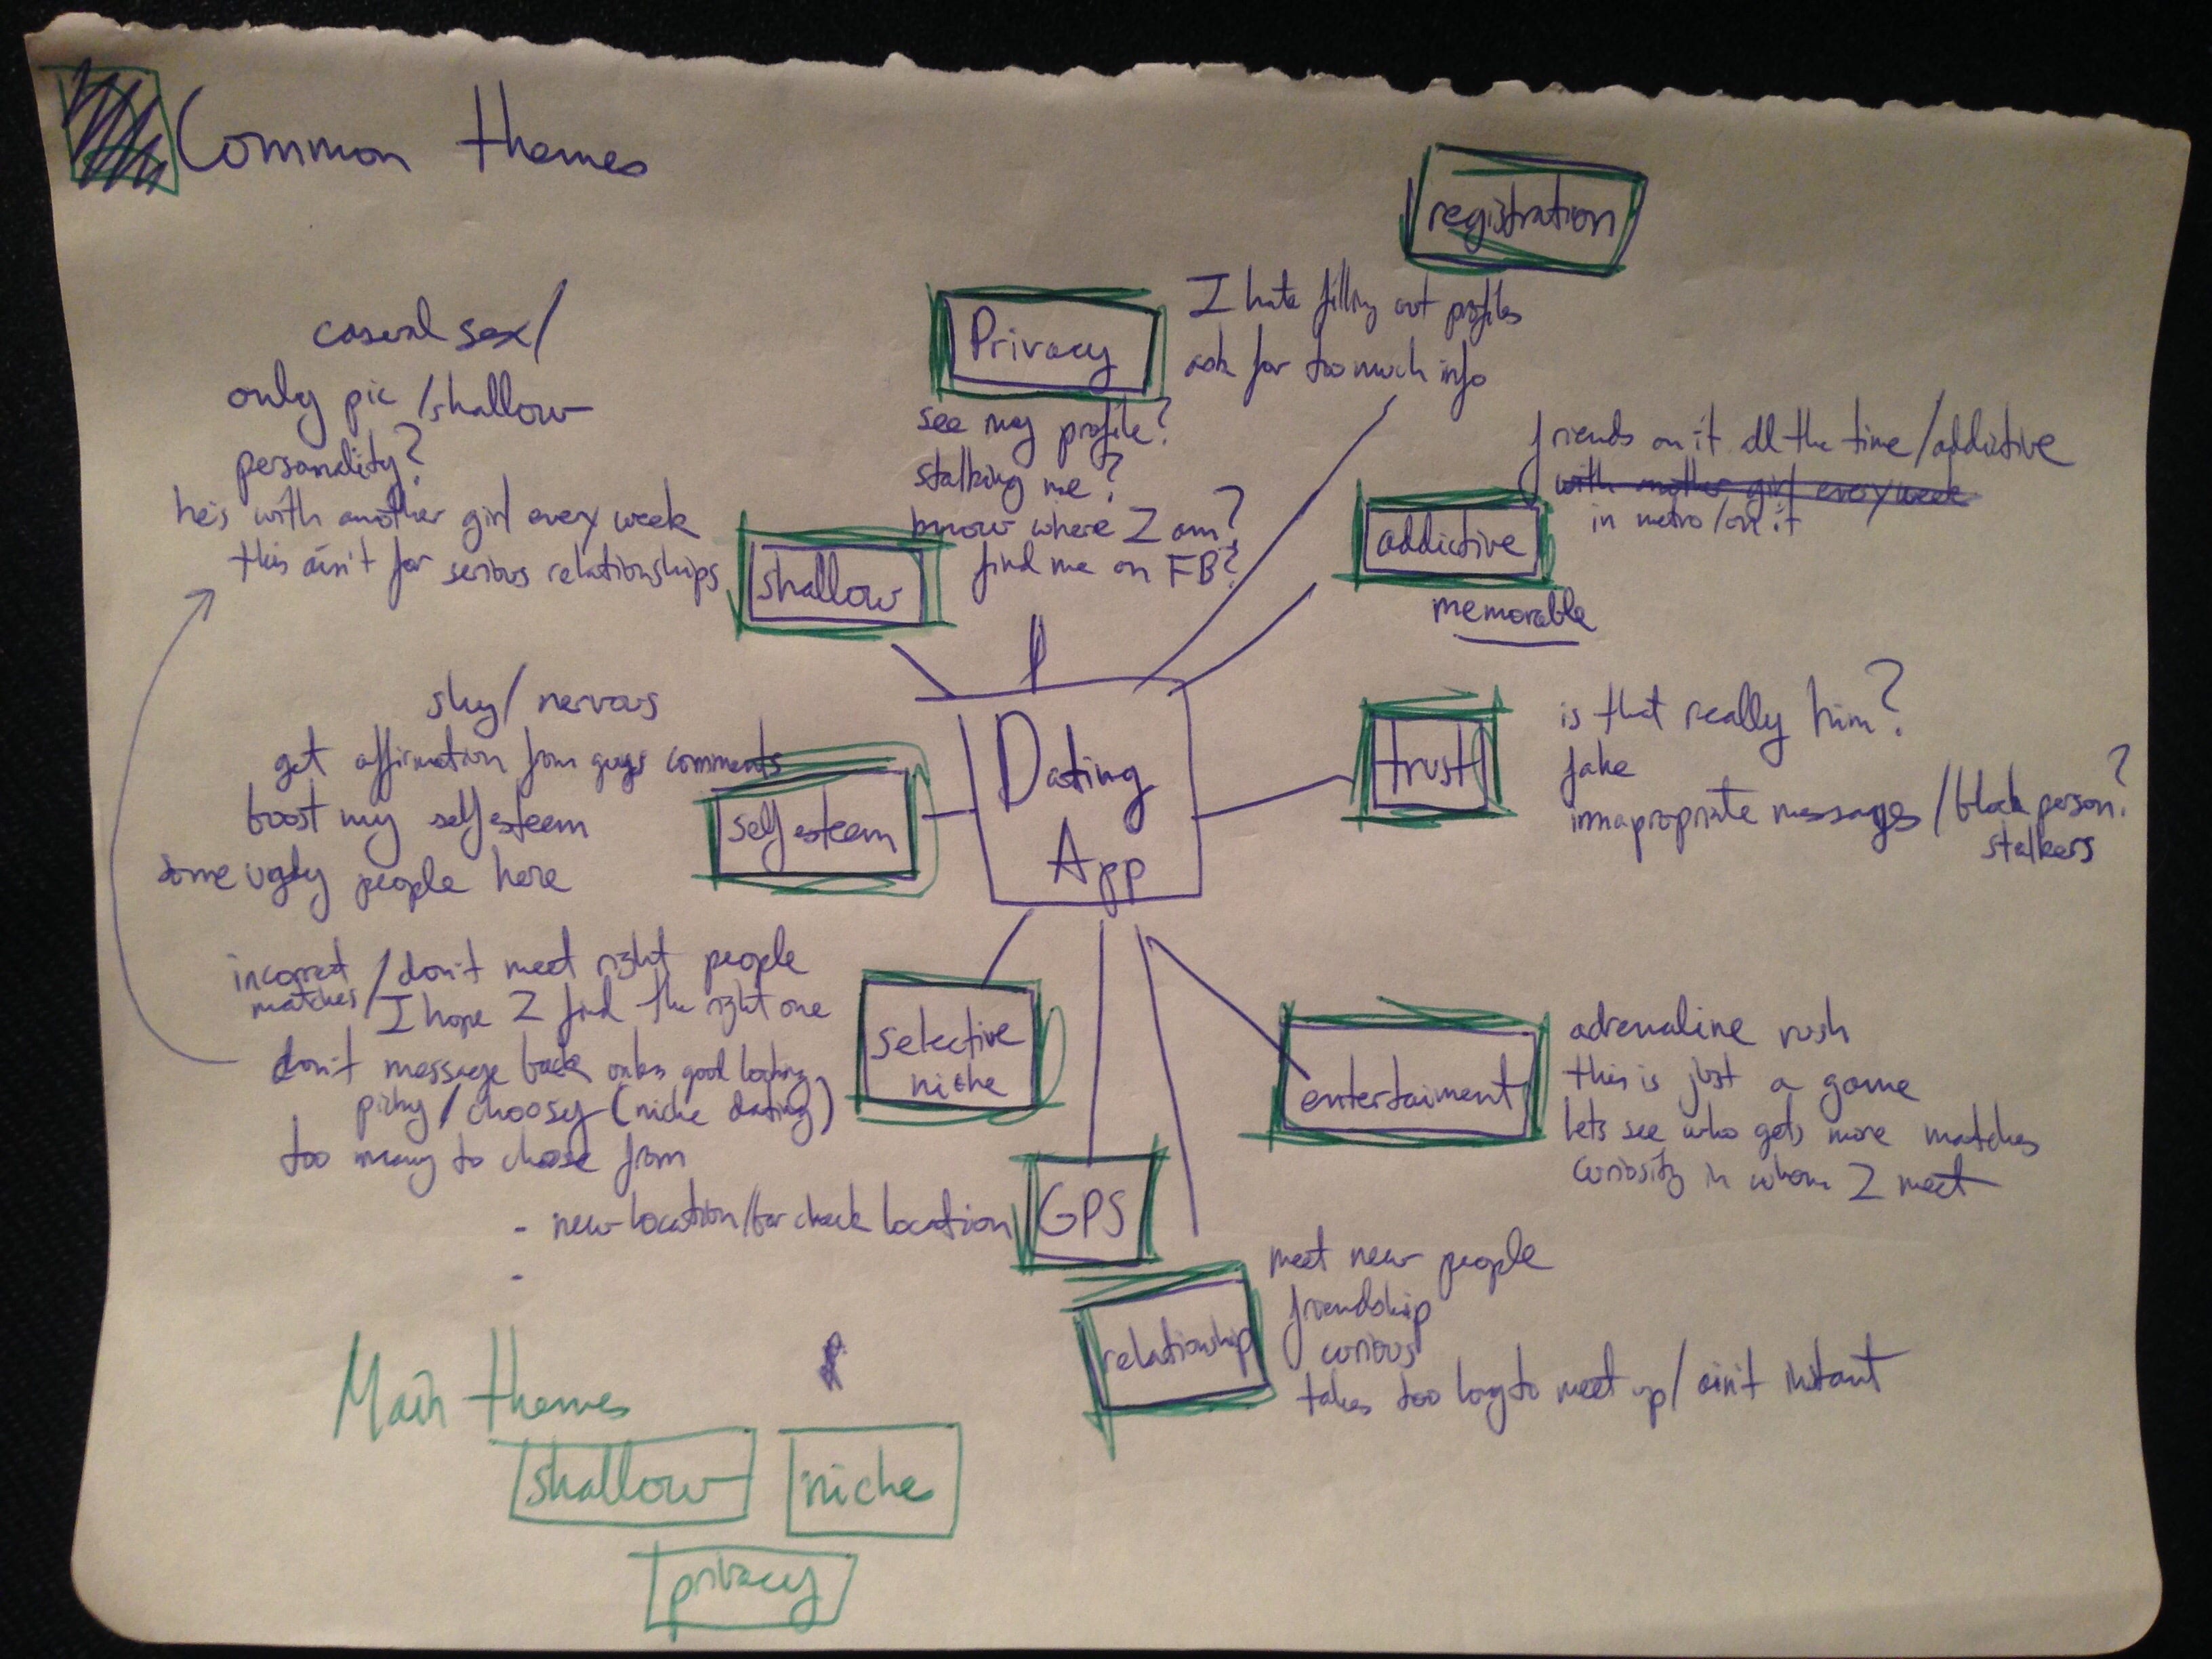 Common themes
registration
I hate filling out profiles
ask for too much info
Privacy
see my profile?
stalking me?
know where I am?
find me on FB?
casual sex/
only pic/shallow
personality?
he's with another girl every week
this ain't for serious relationships
shallow
friends on it all the time/addictive
with another girl every week
in metro/on it
addictive
memorable
shy/nervous
get affirmation from guys comments
boost my self esteem
some ugly people here
self esteem
Dating
App
trust
is that really him?
fake
innapropriate messages/block person?
stalkers
incorrect / don't meet right people
matches / I hope I find the right one
don't message back only good looking
picky/choosy (niche dating)
too many to chose from
selective
niche
entertaiment
adrenaline rush
this is just a game
lets see who gets more matches
curiosity in whom I meet
- new location/bar check location
-
GPS
relationship
meet new people
friendship
curious
takes too long to meet up/ain't instant
Main themes
shallow
niche
privacy